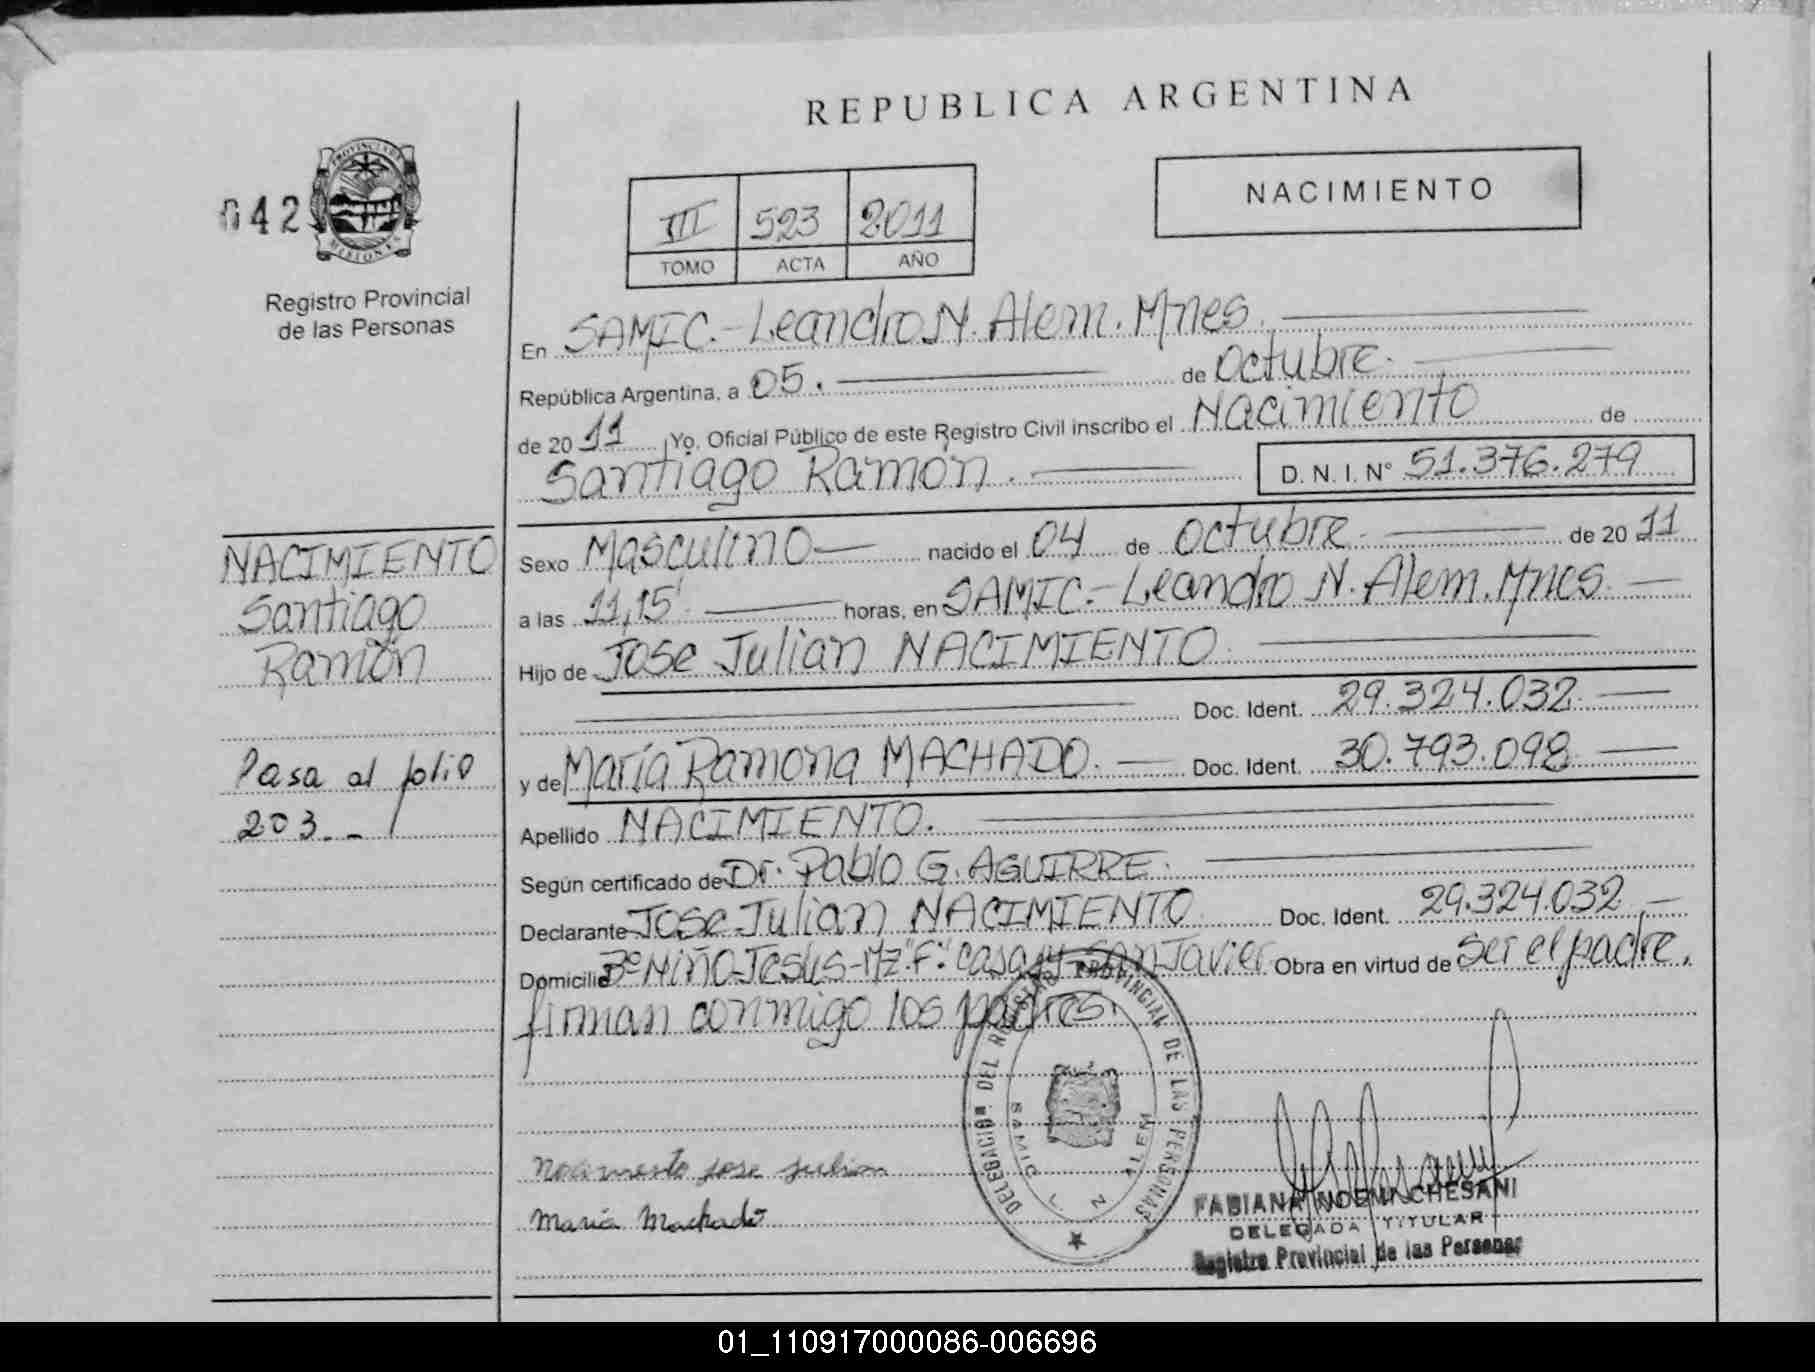 REPUBLICA ARGENTINA
042
PROVINCIA DE MISIONES
Registro Provincial
de las Personas
III 523 2011
TOMO ACTA AÑO
NACIMIENTO
En SAMIC.- Leandro N. Alem. Mnes.
República Argentina, a 05. de Octubre.
de 20 11 Yo, Oficial Público de este Registro Civil inscribo el Nacimiento de
Santiago Ramón. D. N. I. N° 51.376.279
NACIMIENTO
Santiago
Ramón
Pasa al folio
203.-
Sexo Masculino nacido el 04 de Octubre de 20 11
a las 11,15' horas, en SAMIC.- Leandro N. Alem. Mnes.
Hijo de Jose Julian NACIMIENTO.
Doc. Ident. 29.324.032
y de María Ramona MACHADO. Doc. Ident. 30.793.098
Apellido NACIMIENTO.
Según certificado de Dr. Pablo G. AGUIRRE.
Declarante Jose Julian NACIMIENTO Doc. Ident. 29.324.032
Domicilio B° Niño Jesús - Mz "F" casa San Javier Obra en virtud de ser el padre.
firman conmigo los padres.
DELEGACIÓN DEL REGISTRO PROVINCIAL DE LAS PERSONAS
SAMIC L. N. ALEM
Nacimiento jose julian
Maria Machado
FABIANA NOEMI CHESANI
DELEGADA TITULAR
Registro Provincial de las Personas
01_110917000086-006696